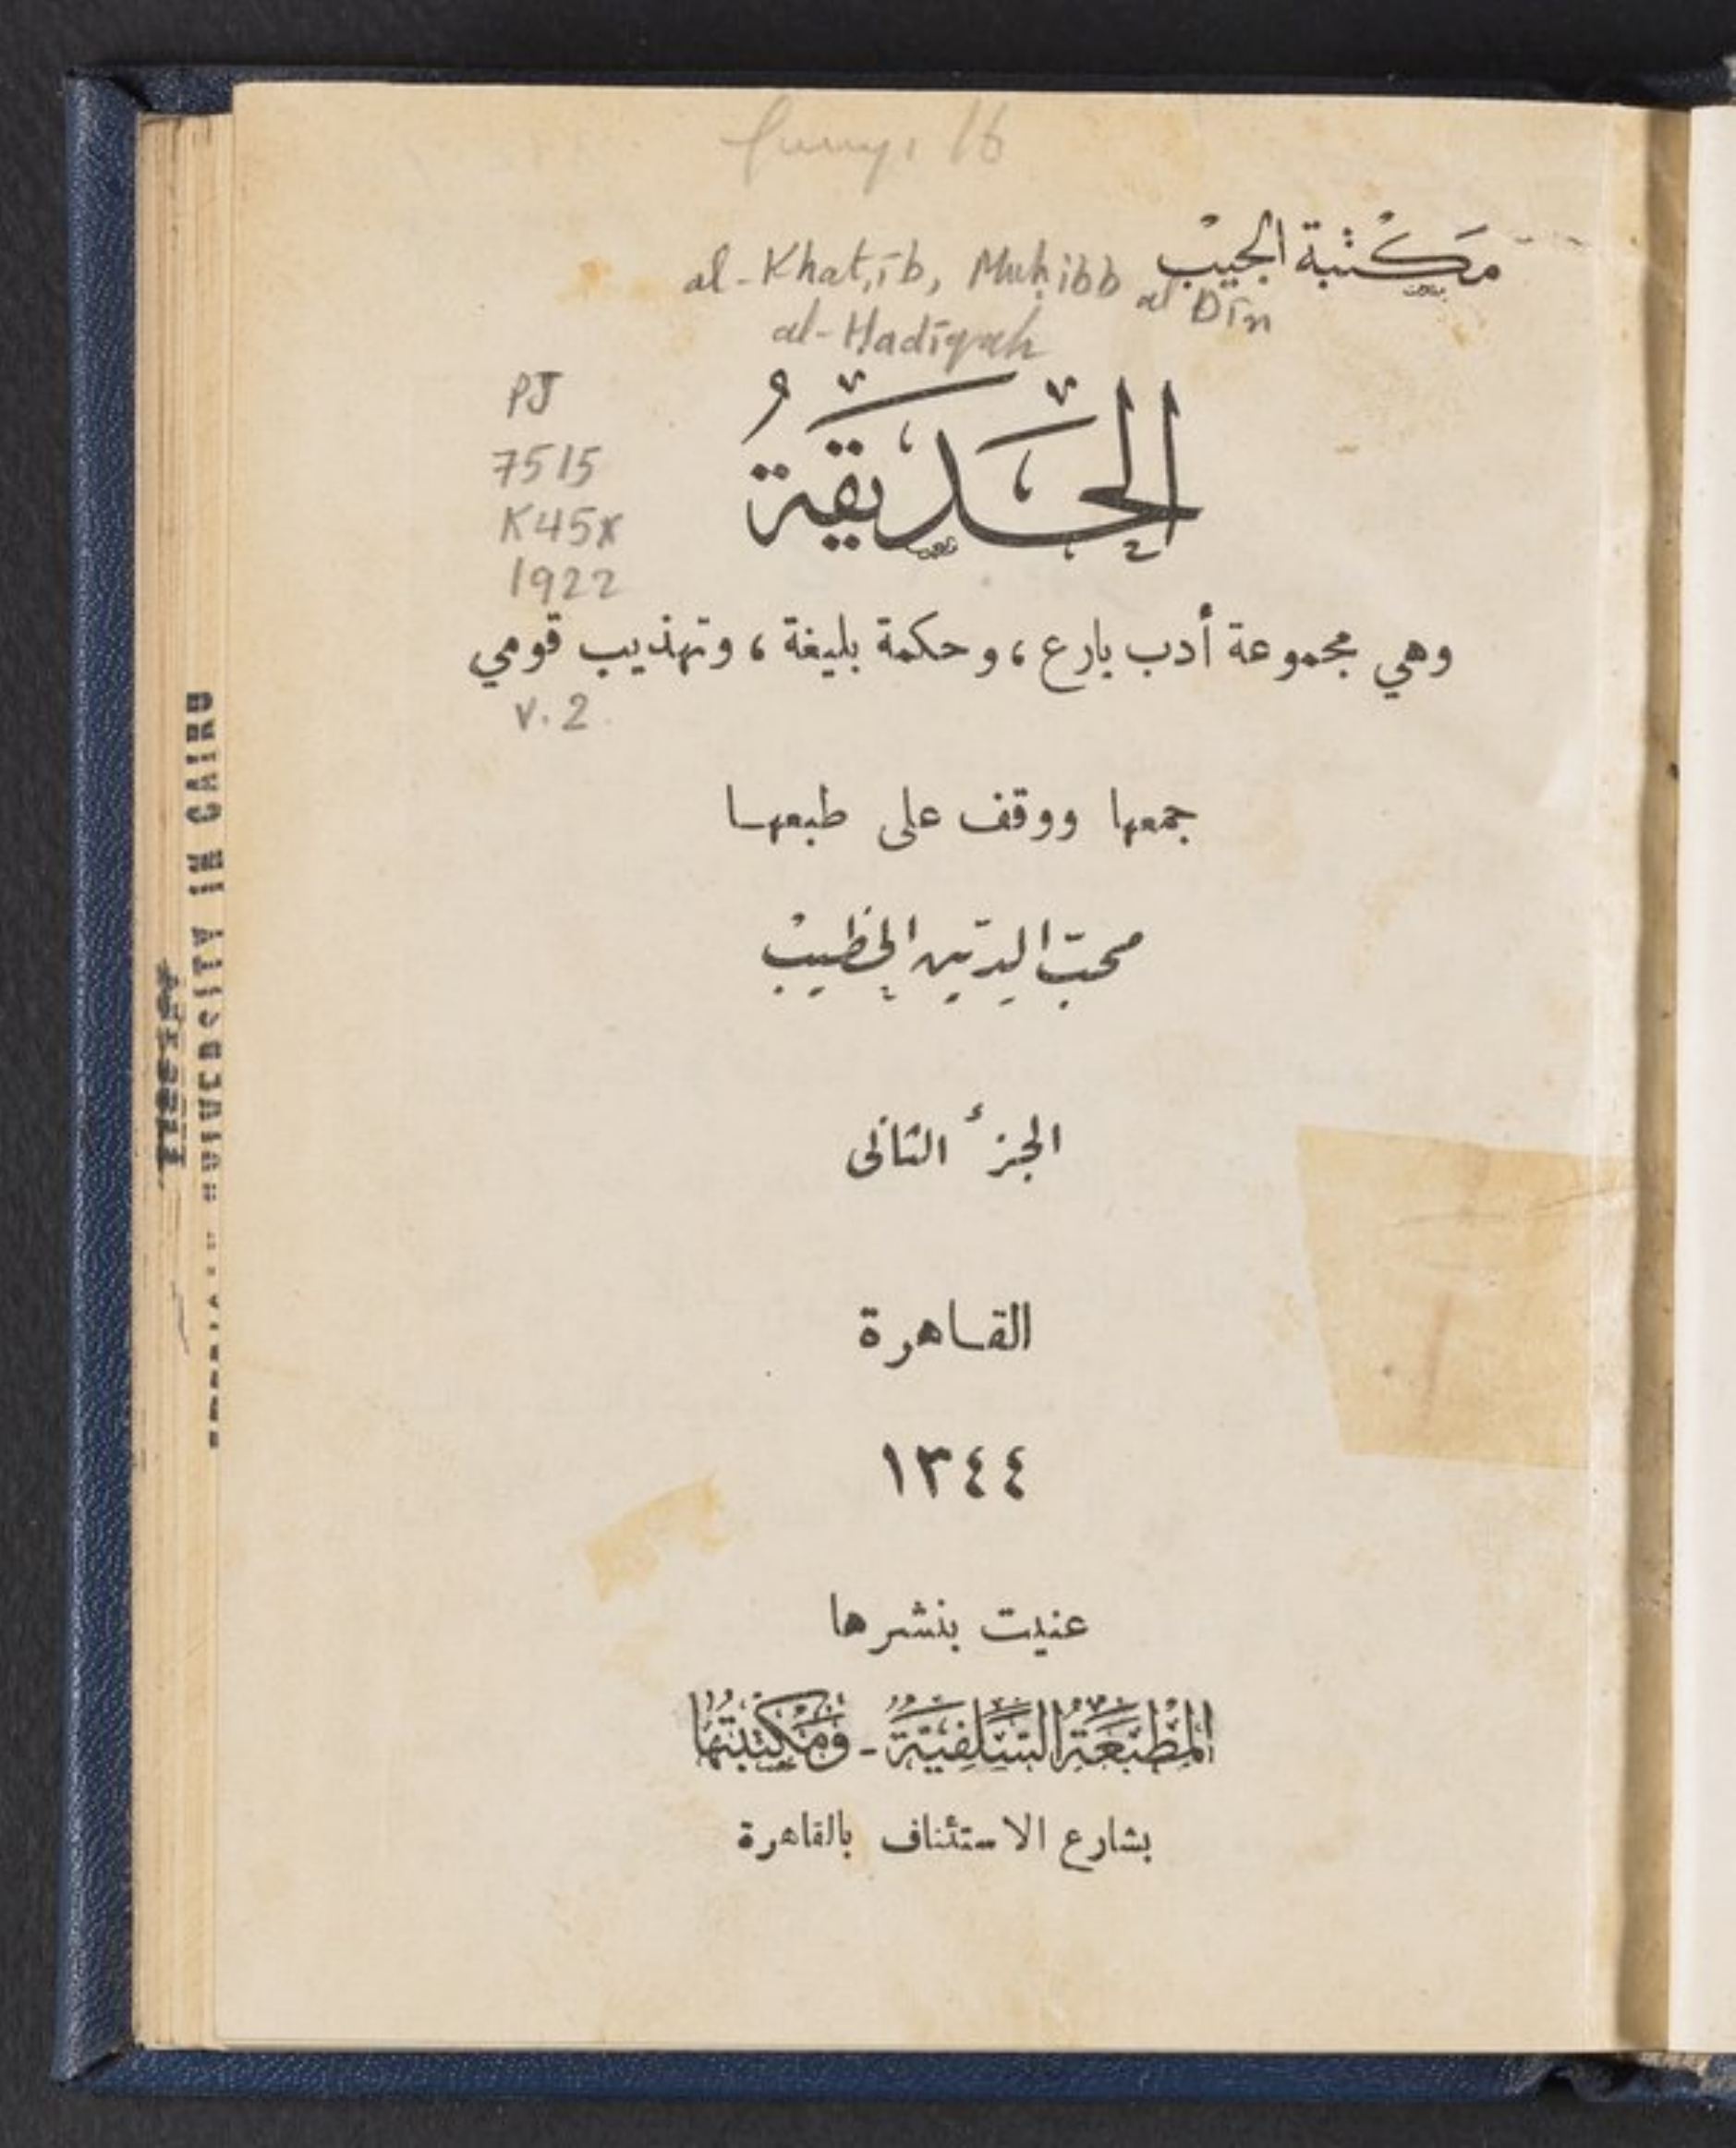 مَكْتبة الجيبْ
al-Khaṭīb, Muḥibb al Dīn
al-Hadīqah
PJ
7515
K45x
1922
الحَديقَةُ
وهي مجموعة أدب بارع ، وحكمة بليغة ، وتهذيب قومي
v. 2
جمعها ووقف على طبعها
محبّ الدّين الخطيبْ
الجزء الثانى
القاهرة
١٣٤٤
عنيت بنشرها
المَطْبَعَةُ السَّلَفِيَّةُ - وَمَكْتَبَتُهَا
بشارع الاستئناف بالقاهرة